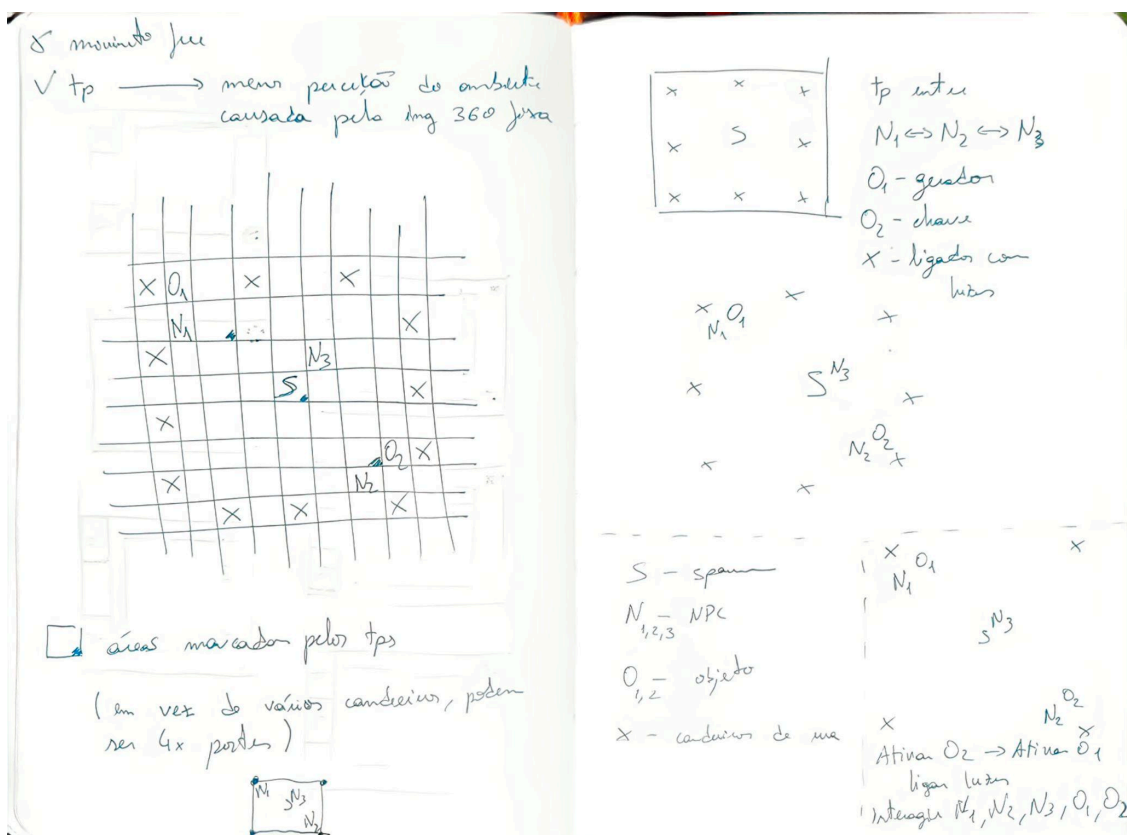 movimento
✓ tp → menor perceção do ambiente
causada pela img 360 fixa
X O1 X X
N1 X
X N3
S X
X
O2 X
X N2
X X X
áreas marcadas pelos tps
(em vez de vários candeeiros, podem
ser 4x postes)
N1
S N3
N2
X X X
X S X
X X X
tp entre
N1 ↔ N2 ↔ N3
O1 - gerador
O2 - chave
X - ligados com
luzes
X X
N1 O1 X
X S N3 X
N2 O2
X X
X
S - spawn
N1,2,3 - NPC
O1,2 - objeto
X - candeeiros de rua
X X
N1 O1
S N3
N2 O2
X X
Ativar O2 → Ativar O1
ligar luzes
Interagir N1, N2, N3, O1, O2